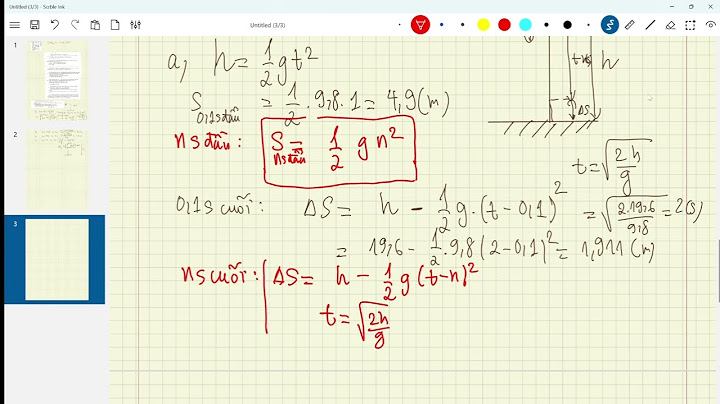 Untitled (3/3) - Scrble Ink
Untitled (3/3)
1
2
3
a, h = 1/2 gt²
S 0,1s đầu = 1/2 . 9,8 . 1 = 4,9 (m)
h
ΔS
n s đầu : S n s đầu = 1/2 g n²
t = √(2h/g)
0,1 s cuối : ΔS = h - 1/2 g. (t - 0,1)² = √(2.19,6/9,8) = 2(s)
= 19,6 - 1/2 . 9,8 (2 - 0,1)² = 1,911 (m)
n s cuối : ΔS = h - 1/2 g (t - n)²
t = √(2h/g)